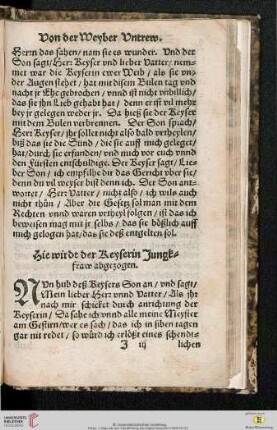 Von der Weyber Vntrew.
Herrn das sahen / nam sie es wunder. Vnd der
Son sagt / Herr Keyser vnd lieber Vatter / nem-
met war die Keyserin ewer Weib / als sie vn-
der Augen stehet / hat mit disem Bůlen tag vnd
nacht jr Ehe gebrochen / vnnd ist nicht vnbillich /
das sie jhn Lieb gehabt hat / denn er ist vil mehr
bey jr gelegen weder jr. Da hieß sie der Keyser
mit dem Bůlen verbrennen. Der Son sprach /
Herr Keyser / jhr sollet nicht also bald vrtheylen /
biß das sie die Sünd / die sie auff mich geleget
hat / durch sie erfunden / vnd mich vor euch vnnd
den Fürsten entschüldige. Der Keyser sagt / Lies
ber Son / ich empfilhe dir das Gericht vber sie /
denn du vil weyser bist denn ich. Der Son ant-
wortet / Herr Vatter / nicht also / ich wils auch
nicht thůn / Aber die Gesetz sol man mit dem
Rechten vnnd waren vrtheyl folgen / ist das ich
beweisen mag mit jr selbs / das sie bößlich auff
mich gelogen hat / das sie deß entgelten sol.
Hie wirdt der Keyserin Jungk-
fraw abgezogen.
NVn hub deß Keysers Son an / vnd sagt /
Mein lieber Herr vnnd Vatter / Als jhr
nach mir schicket durch anrichtung der
Keyserin / Da sahe ich vnnd alle meine Meyster
am Gestirn / wer es sach / das ich in siben tagen
gar nit redet / so würd ich erlößt eines schendt-
J iij lichen